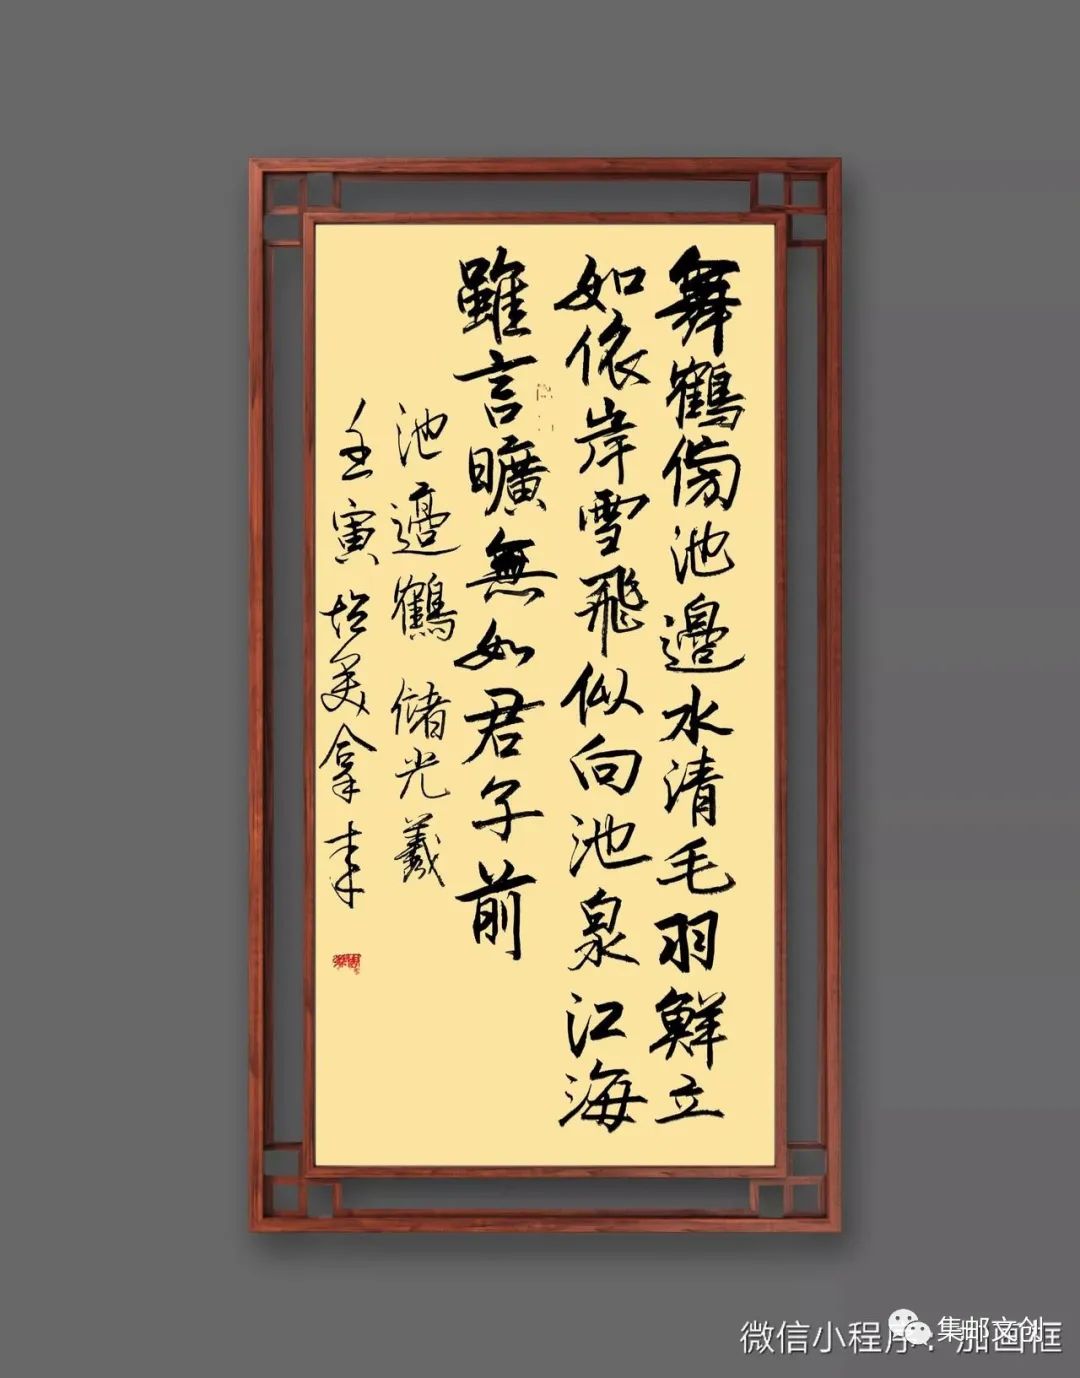 舞鶴傍池邊水清毛羽鮮立
如依岸雪飛似向池泉江海
雖言曠無如君子前
池邊鶴 儲光羲
壬寅
微信小程序：加画框
集邮文创